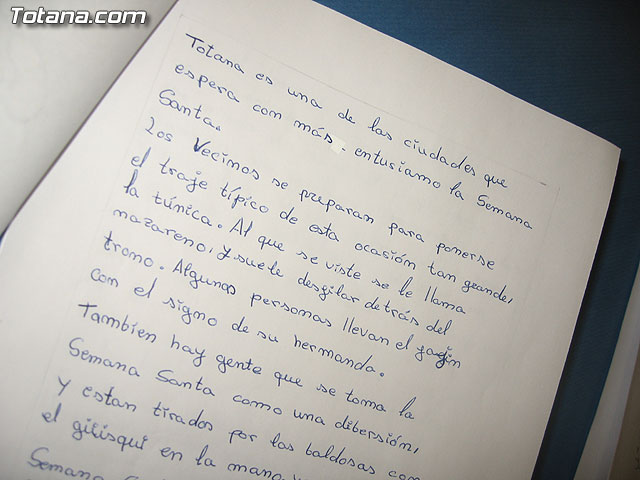 Totana.com
Totana es una de las ciudades que
espera con más entusiamo la Semana
Santa.
Los Vecinos se preparan para ponerse
el traje típico de esta ocasión tan grande,
la túnica. Al que se viste se le llama
nazareno, y suele desfilar detrás del
trono. Algunas personas llevan el
con el signo de su hermanda.
Tambien hay gente que se toma la
Semana Santa como una dibersión,
y estan tirados por las baldosas con
el gilisqui en la mano
Semana